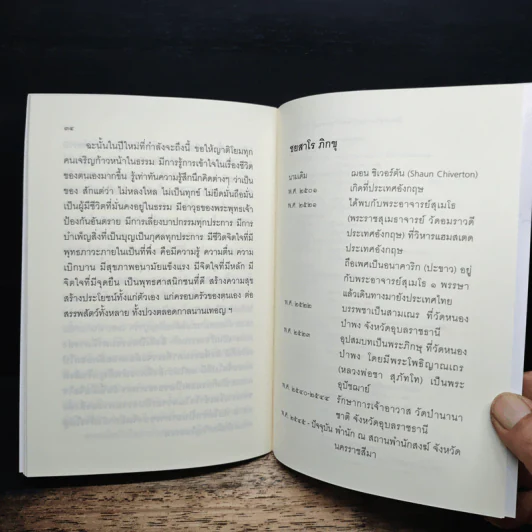 ๓๔
ฉะนั้นในปีใหม่ที่กำลังจะถึงนี้ ขอให้ญาติโยมทุก
คนเจริญก้าวหน้าในธรรม มีการรู้การเข้าใจในเรื่องชีวิต
ของตนเองมากขึ้น รู้เท่าทันความรู้สึกนึกคิดต่างๆ ว่าเป็น
ของ สักแต่ว่า ไม่หลงใหล ไม่เป็นทุกข์ ไม่ยึดมั่นถือมั่น
เป็นผู้มีชีวิตที่มั่นคงอยู่ในธรรม มีอาวุธของพระพุทธเจ้า
ป้องกันอันตราย มีการเลี่ยงบาปกรรมทุกประการ มีการ
บำเพ็ญสิ่งที่เป็นบุญเป็นกุศลทุกประการ มีชีวิตจิตใจที่มี
พุทธภาวะภายในเป็นที่พึ่ง คือมีความรู้ ความตื่น ความ
เบิกบาน มีสุขภาพอนามัยแข็งแรง มีจิตใจที่มีหลัก มี
จิตใจที่มีจุดยืน เป็นพุทธศาสนิกชนที่ดี สร้างความสุข
สร้างประโยชน์ทั้งแก่ตัวเอง แก่ครอบครัวของตนเอง ต่อ
สรรพสัตว์ทั้งหลาย ทั้งปวงตลอดกาลนานเทอญ ฯ
ชยสาโร ภิกขุ
นามเดิม ฌอน ชิเวอร์ตัน (Shaun Chiverton)
พ.ศ. ๒๕๐๑ เกิดที่ประเทศอังกฤษ
พ.ศ. ๒๕๒๑ ได้พบกับพระอาจารย์สุเมโธ
(พระราชสุเมธาจารย์ วัดอมราวดี
ประเทศอังกฤษ) ที่วิหารแฮมสเตด
ประเทศอังกฤษ
ถือเพศเป็นอนาคาริก (ปะขาว) อยู่
กับพระอาจารย์สุเมโธ ๑ พรรษา
แล้วเดินทางมายังประเทศไทย
พ.ศ. ๒๕๒๒ บรรพชาเป็นสามเณร ที่วัดหนอง
ป่าพง จังหวัดอุบลราชธานี
พ.ศ. ๒๕๒๓ อุปสมบทเป็นพระภิกษุ ที่วัดหนอง
ป่าพง โดยมีพระโพธิญาณเถร
(หลวงพ่อชา สุภัทโท) เป็นพระ
อุปัชฌาย์
พ.ศ. ๒๕๔๐-๒๕๔๔ รักษาการเจ้าอาวาส วัดป่านานา
ชาติ จังหวัดอุบลราชธานี
พ.ศ. ๒๕๔๕ - ปัจจุบัน พำนัก ณ สถานพำนักสงฆ์ จังหวัด
นครราชสีมา